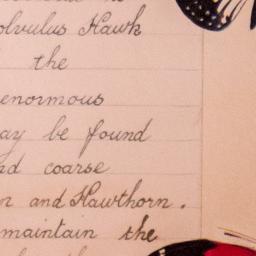 olvulus Hawk
the
enormous
ay be found
nd coarse
n and Hawthorn.
maintain the